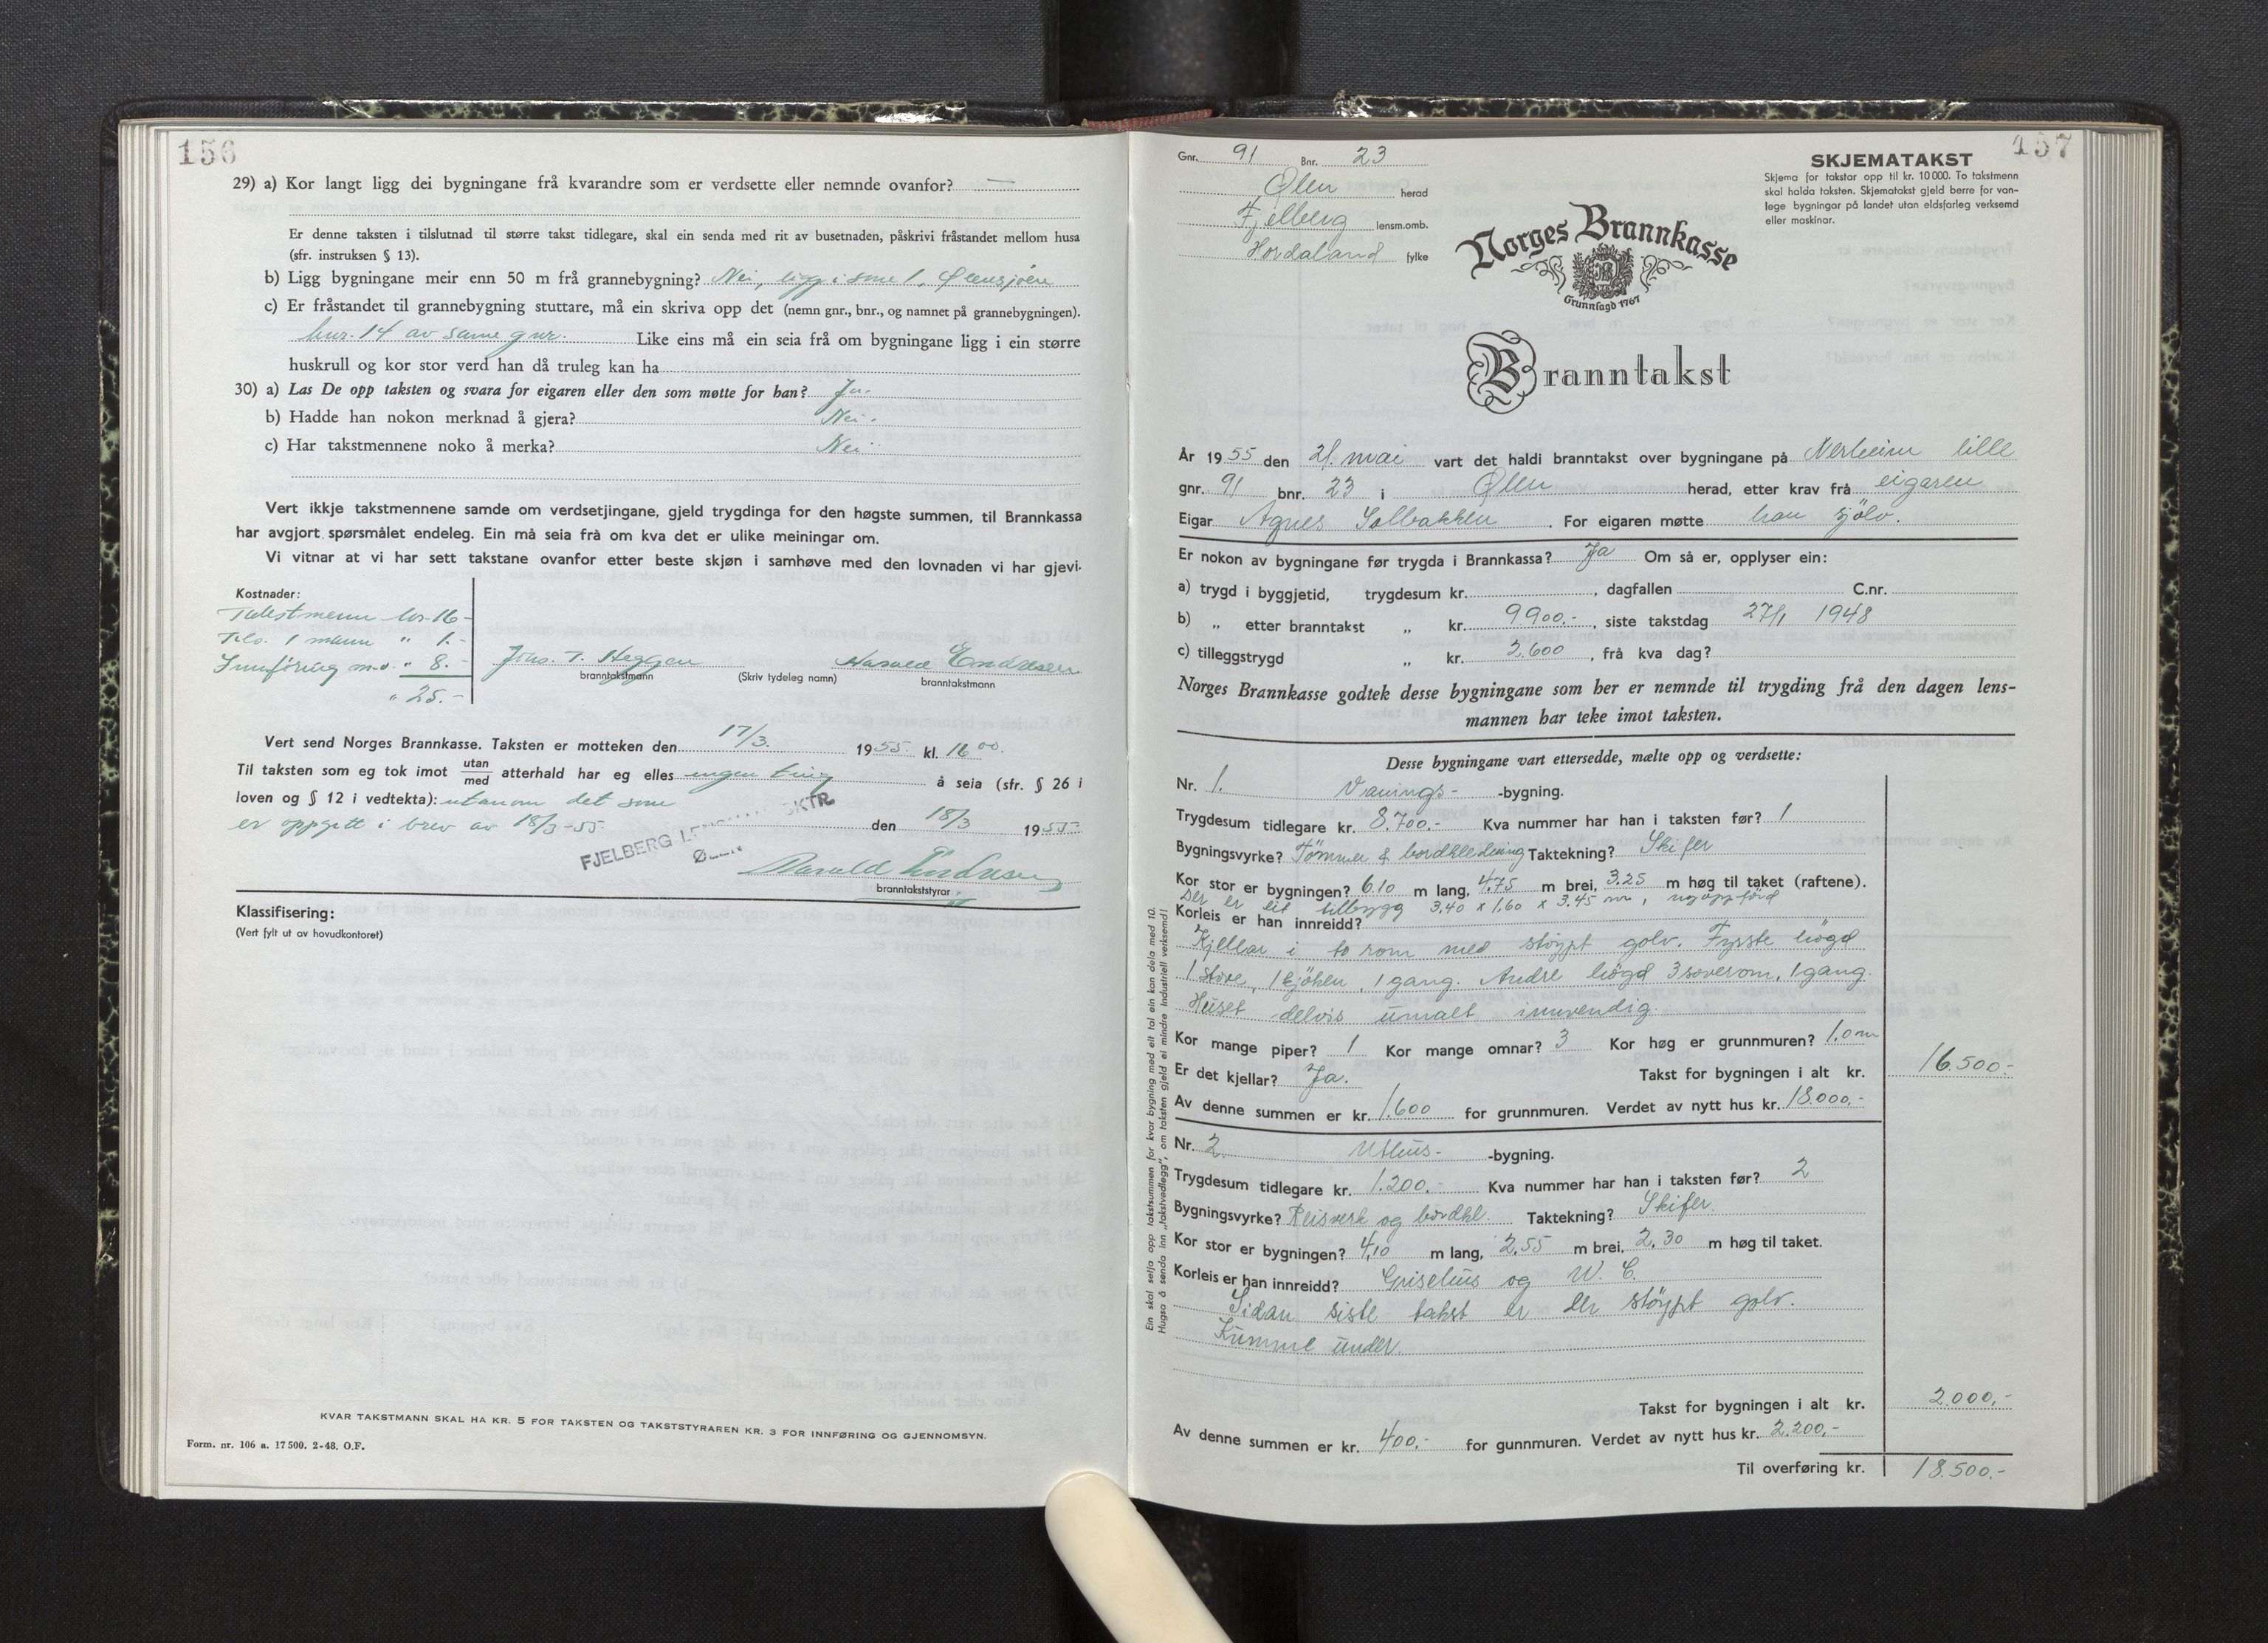 156
29) a) Kor langt ligg dei bygningane frå kvarandre som er verdsette eller nemnde ovanfor? —
Er denne taksten i tilslutnad til større takst tidlegare, skal ein senda med rit av busetnaden, påskrivi fråstandet mellom husa
(sfr. instruksen § 13).
b) Ligg bygningane meir enn 50 m frå grannebygning? Nei, ligg i
c) Er fråstandet til grannebygning stuttare, må ein skriva opp det (nemn gnr., bnr., og namnet på grannebygningen).
bnr. 14 av same gnr. Like eins må ein seia frå om bygningane ligg i ein større
huskrull og kor stor verd han då truleg kan ha
30) a) Las De opp taksten og svara for eigaren eller den som møtte for han? Ja.
b) Hadde han nokon merknad å gjera? Nei.
c) Har takstmennene noko å merka? Nei
Vert ikkje takstmennene samde om verdsetjingane, gjeld trygdinga for den høgste summen, til Brannkassa
har avgjort spørsmålet endeleg. Ein må seia frå om kva det er ulike meiningar om.
Vi vitnar at vi har sett takstane ovanfor etter beste skjøn i samhøve med den lovnaden vi har gjevi.
Kostnader:
Takstmenn kr. 16 -
Tils. 1 mann " 1.-
Innføring m.v. " 8.-
" 25.-
Jons. T. Heggen Harald Endresen
branntakstmann (Skriv tydeleg namn) branntakstmann
Vert send Norges Brannkasse. Taksten er motteken den 17/3. 1955 kl. 16 00.
Til taksten som eg tok imot utan/med atterhald har eg elles ingen ting å seia (sfr. § 26 i
loven og § 12 i vedtekta): utanom det som
er oppgitt i brev av 18/3-55. den 18/3 1955
FJELBERG ØLEN
Harald Endresen
branntakststyrar
Klassifisering:
(Vert fylt ut av hovudkontoret)
KVAR TAKSTMANN SKAL HA KR. 5 FOR TAKSTEN OG TAKSTSTYRAREN KR. 3 FOR INNFØRING OG GJENNOMSYN.
Form. nr. 106 a. 17 500. 2-48. O.F.
157
Gnr. 91 Bnr. 23
Ølen herad
Fjelberg lensm.omb.
Hordaland fylke
SKJEMATAKST
Skjema for takstar opp til kr. 10 000. To takstmenn
skal halda taksten. Skjematakst gjeld berre for van-
lege bygningar på landet utan eldsfarleg verksemd
eller maskinar.
Norges Brannkasse
Grunnlagd 1767
Branntakst
År 1955 den 21. mai vart det haldi branntakst over bygningane på Nerheim lille
gnr. 91 bnr. 23 i Ølen herad, etter krav frå eigaren
Eigar Agnes Solbakken. For eigaren møtte han sjølv.
Er nokon av bygningane før trygda i Brannkassa? Ja Om så er, opplyser ein:
a) trygd i byggjetid, trygdesum kr. , dagfallen C.nr.
b) „ etter branntakst „ kr. 9900.-, siste takstdag 27/1 1948
c) tilleggstrygd „ kr. 2.600, frå kva dag?
Norges Brannkasse godtek desse bygningane som her er nemnde til trygding frå den dagen lens-
mannen har teke imot taksten.
Desse bygningane vart ettersedde, mælte opp og verdsette:
Nr. 1. Vanings- -bygning.
Trygdesum tidlegare kr. 8.700.- Kva nummer har han i taksten før? 1
Bygningsvyrke? Tømmer & bordkledning Taktekning? Skifer
Kor stor er bygningen? 6.10 m lang, 4.75 m brei, 3.25 m høg til taket (raftene).
Der er eit tilbygg 3.40 x 1.60 x 3.45 m, nyoppførd
Korleis er han innreidd?
Kjellar i to rom med støypt golv. Fyrste høgd
1 stove, 1 kjøken, 1 gang. Andre høgd 3 soverom, 1 gang.
Huset delvis umalt innvendig.
Kor mange piper? 1 Kor mange omnar? 3 Kor høg er grunnmuren? 1.0 m
Er det kjellar? Ja. Takst for bygningen i alt kr. 16.500.-
Av denne summen er kr. 1.600 for grunnmuren. Verdet av nytt hus kr. 18.000.-
Nr. 2 Uthus- -bygning.
Trygdesum tidlegare kr. 1.200.- Kva nummer har han i taksten før? 2
Bygningsvyrke? Reisverk og bordkl. Taktekning? Skifer.
Kor stor er bygningen? 4.10 m lang, 2.55 m brei, 2.30 m høg til taket.
Korleis er han innreidd? Grisehus og W. C.
Sidan siste takst er der støypt golv.
Kumme under.
Takst for bygningen i alt kr. 2.000,-
Av denne summen er kr. 400,- for gunnmuren. Verdet av nytt hus kr. 2.200,-
Til overføring kr. 18.500.-
Ein skal setja opp takstsummen for kvar bygning med eit tal ein kan dela med 10.
Hugsa å senda inn „takstvedlegg", om taksten gjeld ei mindre industriell verksemd!